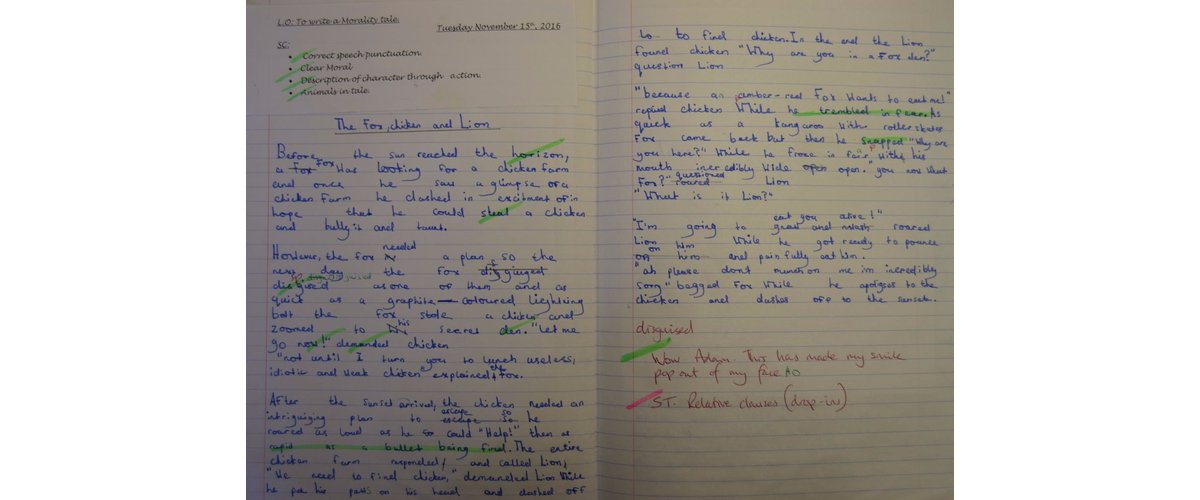 L.O: To write a Morality tale.
Tuesday November 15th, 2016
SC:
• Correct speech punctuation.
• Clear Moral
• Description of character through action.
• Animals in tale.
The Fox, chiken and Lion
Before the sun reached the horizon,
a Fox was looking for a chicken farm
and once he saw a glimpse of a
chicken farm he dashed in excitment of in
hope that he could steal a chicken
and bully it and taunt.
However, the fox needed a plan, so the
next day the fox
disgised as one of them and as
quick as a graphite-coloured lightning
bolt the fox stole a chicken and
zoomed to his secret den. "Let me
go now!" demanded chicken
"not until I turn you to lunch useless,
idiotic and weak chiken" explained the fox.
After the sunset arrival, the chicken needed an
intriguiging plan to escape so he
roared as loud as he could "Help!" then as
rapid as a bullet being fired. The entire
chicken farm responded/ and called Lion,
"We need to find chicken," demanded Lion While
he put his paws on his head and dashed off
to find chicken. In the end the Lion
found chicken "Why are you in a Fox den?"
question Lion
"because an amber-red Fox wants to eat me!"
replied chicken While he trembled in fear. As
quick as a kangaroo with rollerskates
Fox came back but then he snapped "Why are
you here?" While he froze in fair, with his
mouth incredibly wide open. "you now what
Fox?" questioned Lion
"What is it Lion?"
"I'm going to eat you alive!" roared
Lion While he got ready to pounce
on him and painfully eat him.
"ah please don't munch on me im incredibly
sory" bagged Fox While he apolgises to the
chicken and dashes off to the sunset.
disguised
Wow Adam. This has made my smile
pop out of my face
ST. Relative clauses (drop-in)